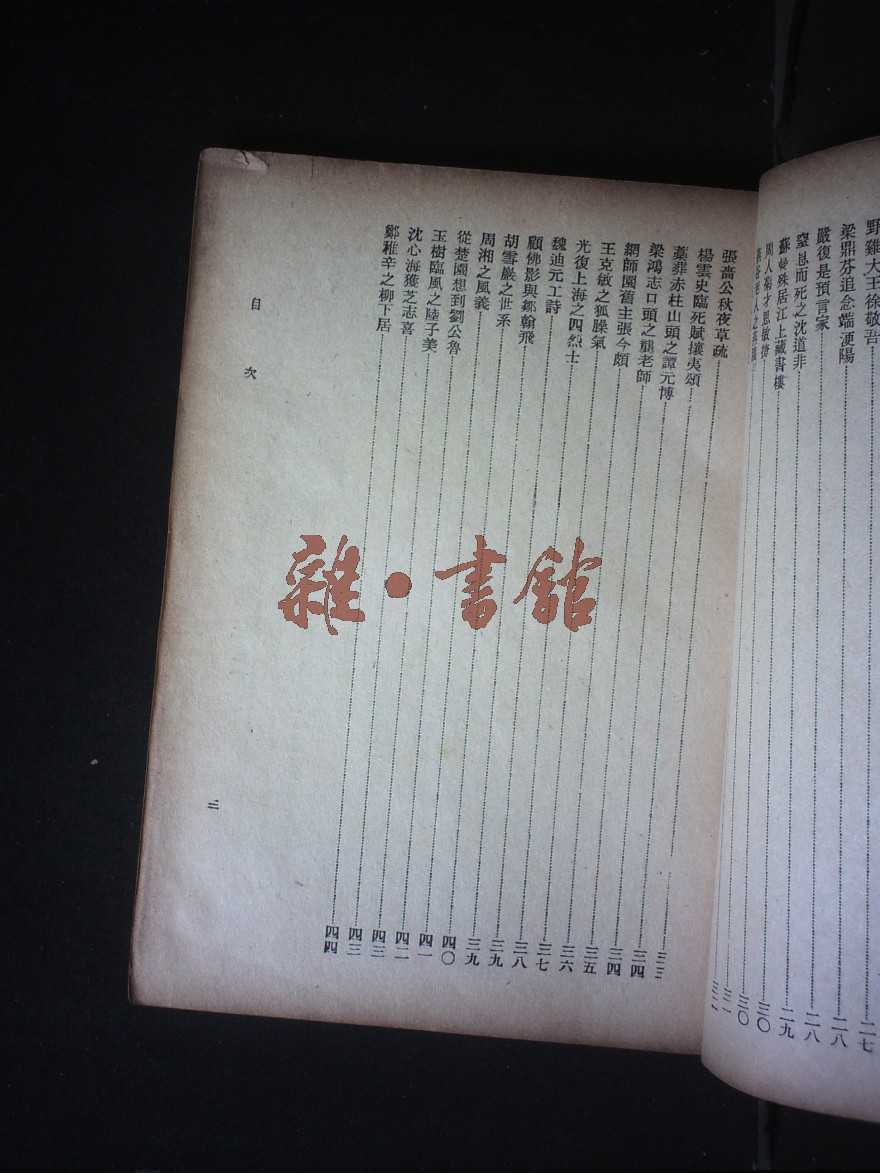 野雞大王徐敬吾 二七
梁鼎芬追念端浭陽 二八
嚴復是預言家 二八
窒息而死之沈道非 二九
蘇曼殊居江上藏書樓 三〇
周人菊才思敏捷 三〇
老人之
張嗇公秋夜草疏 三三
楊雲史臨死賦攘夷頌 三四
藁葬赤柱山頭之譚元博 三四
梁鴻志口頭之龔老師 三五
網師園舊主張今頗 三六
王克敏之狐臊氣 三七
光復上海之四烈士 三八
魏迪元工詩 三九
顧佛影與鄒翰飛 三九
胡雪巖之世系 四〇
周湘之風義 四一
從楚園想到劉公魯 四二
玉樹臨風之陸子美 四三
沈心海獲芝志喜 四三
鄭稚辛之柳下居 四四
目次
三
雜·書館